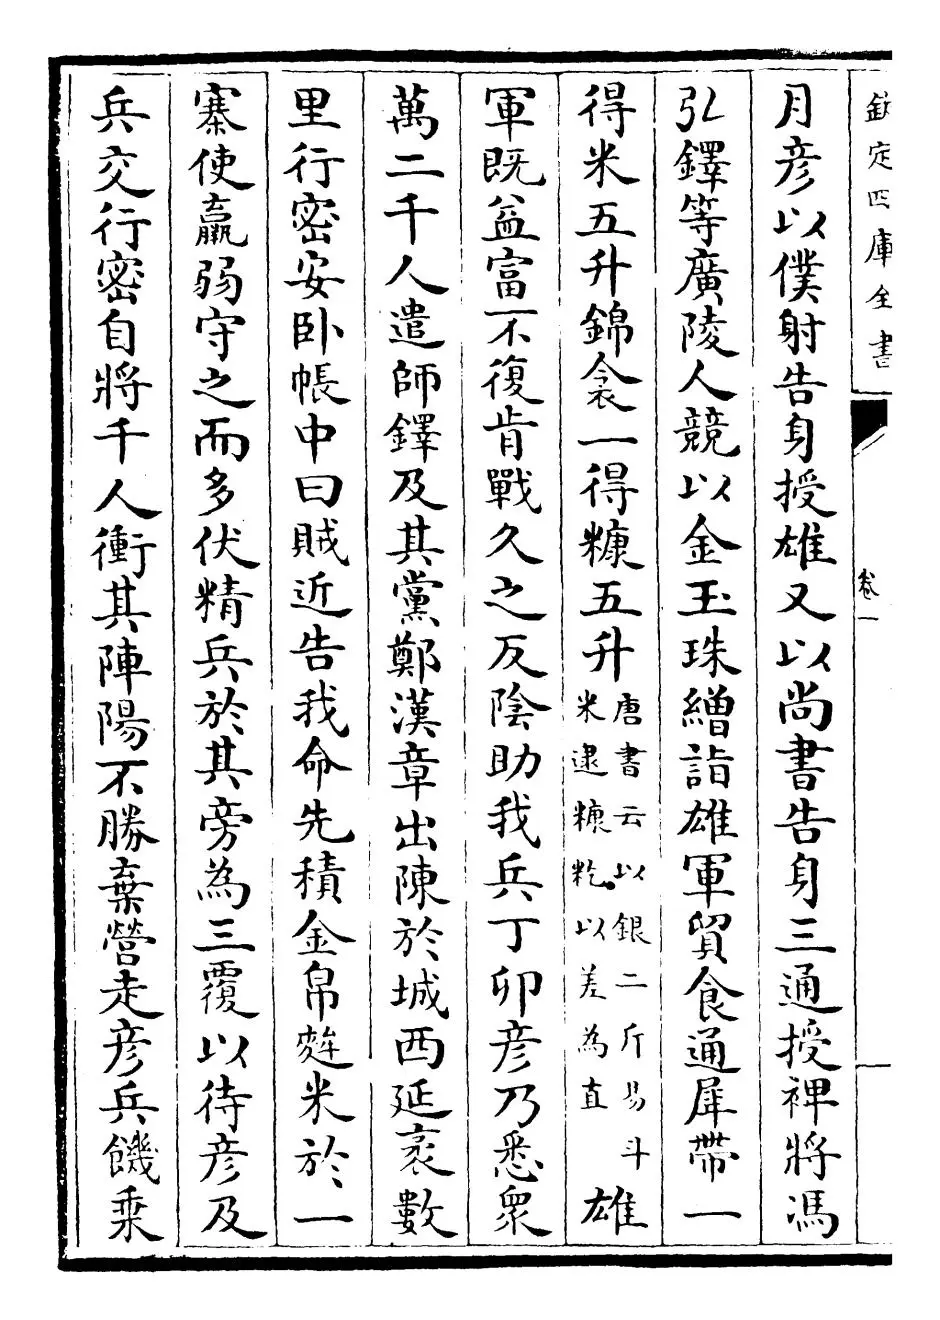 欽定四庫全書
卷一
月彦以僕射告身授雄又以尚書告身三通授裨將馮
弘鐸等廣陵人競以金玉珠繒詣雄軍貿食通犀帶一
得米五升錦衾一得糠五升唐書云以銀二斤易斗米逮糠籺以差為直雄
軍既益富不復肯戰久之反陰助我兵丁卯彦乃悉衆
萬二千人遣師鐸及其黨鄭漢章出陳於城西延袤數
里行密安卧帳中曰賊近告我命先積金帛麰米於一
寨使羸弱守之而多伏精兵於其旁為三覆以待彦及
兵交行密自將千人衝其陣陽不勝棄營走彦兵饑乗